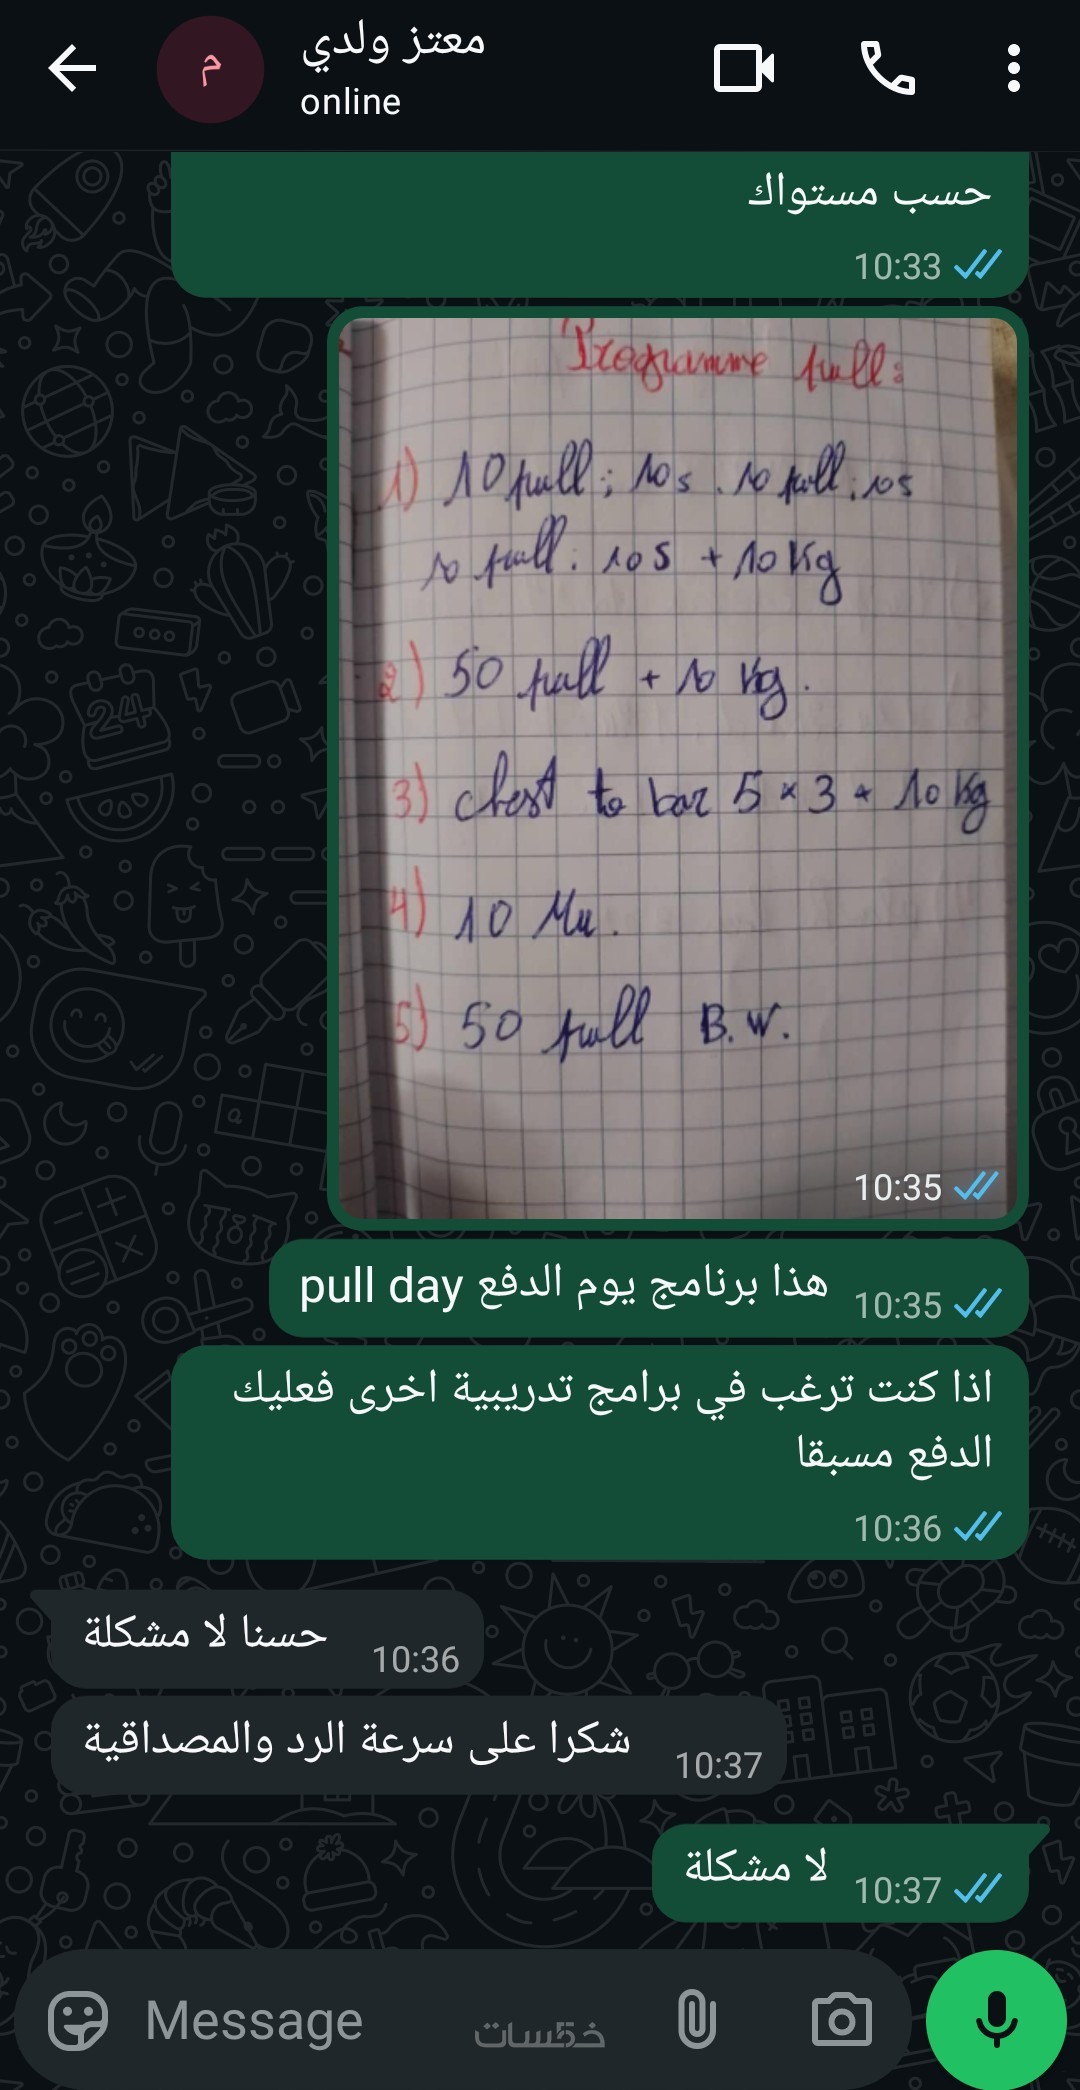 معتز ولدي
م
online
حسب مستواك
10:33
Programme pull:
1) 10 pull; 10s . 10 pull; 10s
10 pull. 10s + 10 Kg
2) 50 pull + 10 Kg.
3) chest to bar 5 × 3 + 10 Kg
4) 10 Mu.
5) 50 pull B.W.
10:35
هذا برنامج يوم الدفع pull day
10:35
اذا كنت ترغب في برامج تدريبية اخرى فعليك
الدفع مسبقا
10:36
حسنا لا مشكلة
10:36
شكرا على سرعة الرد والمصداقية
10:37
لا مشكلة
10:37
Message
خمسات